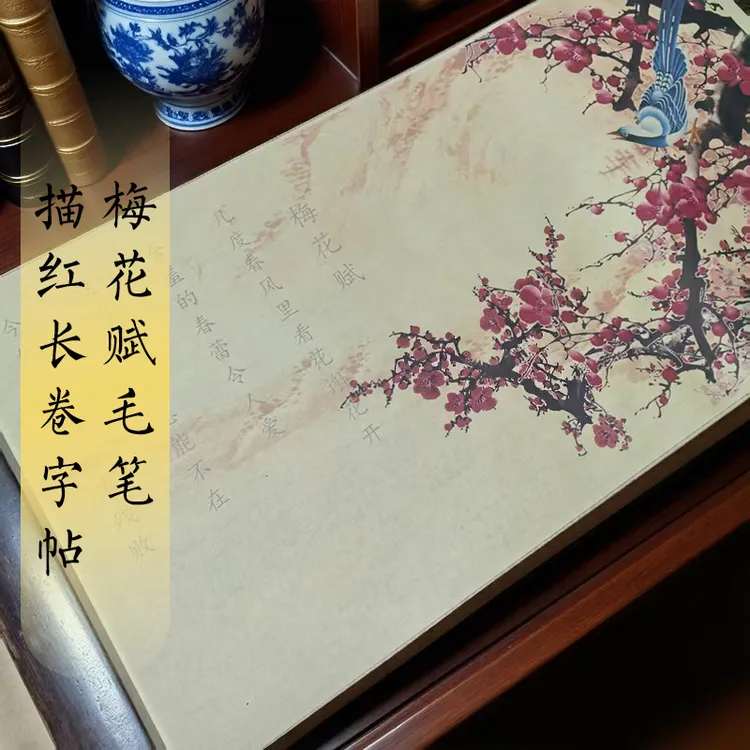 梅花赋毛笔
描红长卷字帖
梅花赋
几度春风里看花
花开
羞的春蕾令人爱
能不在
残败
今